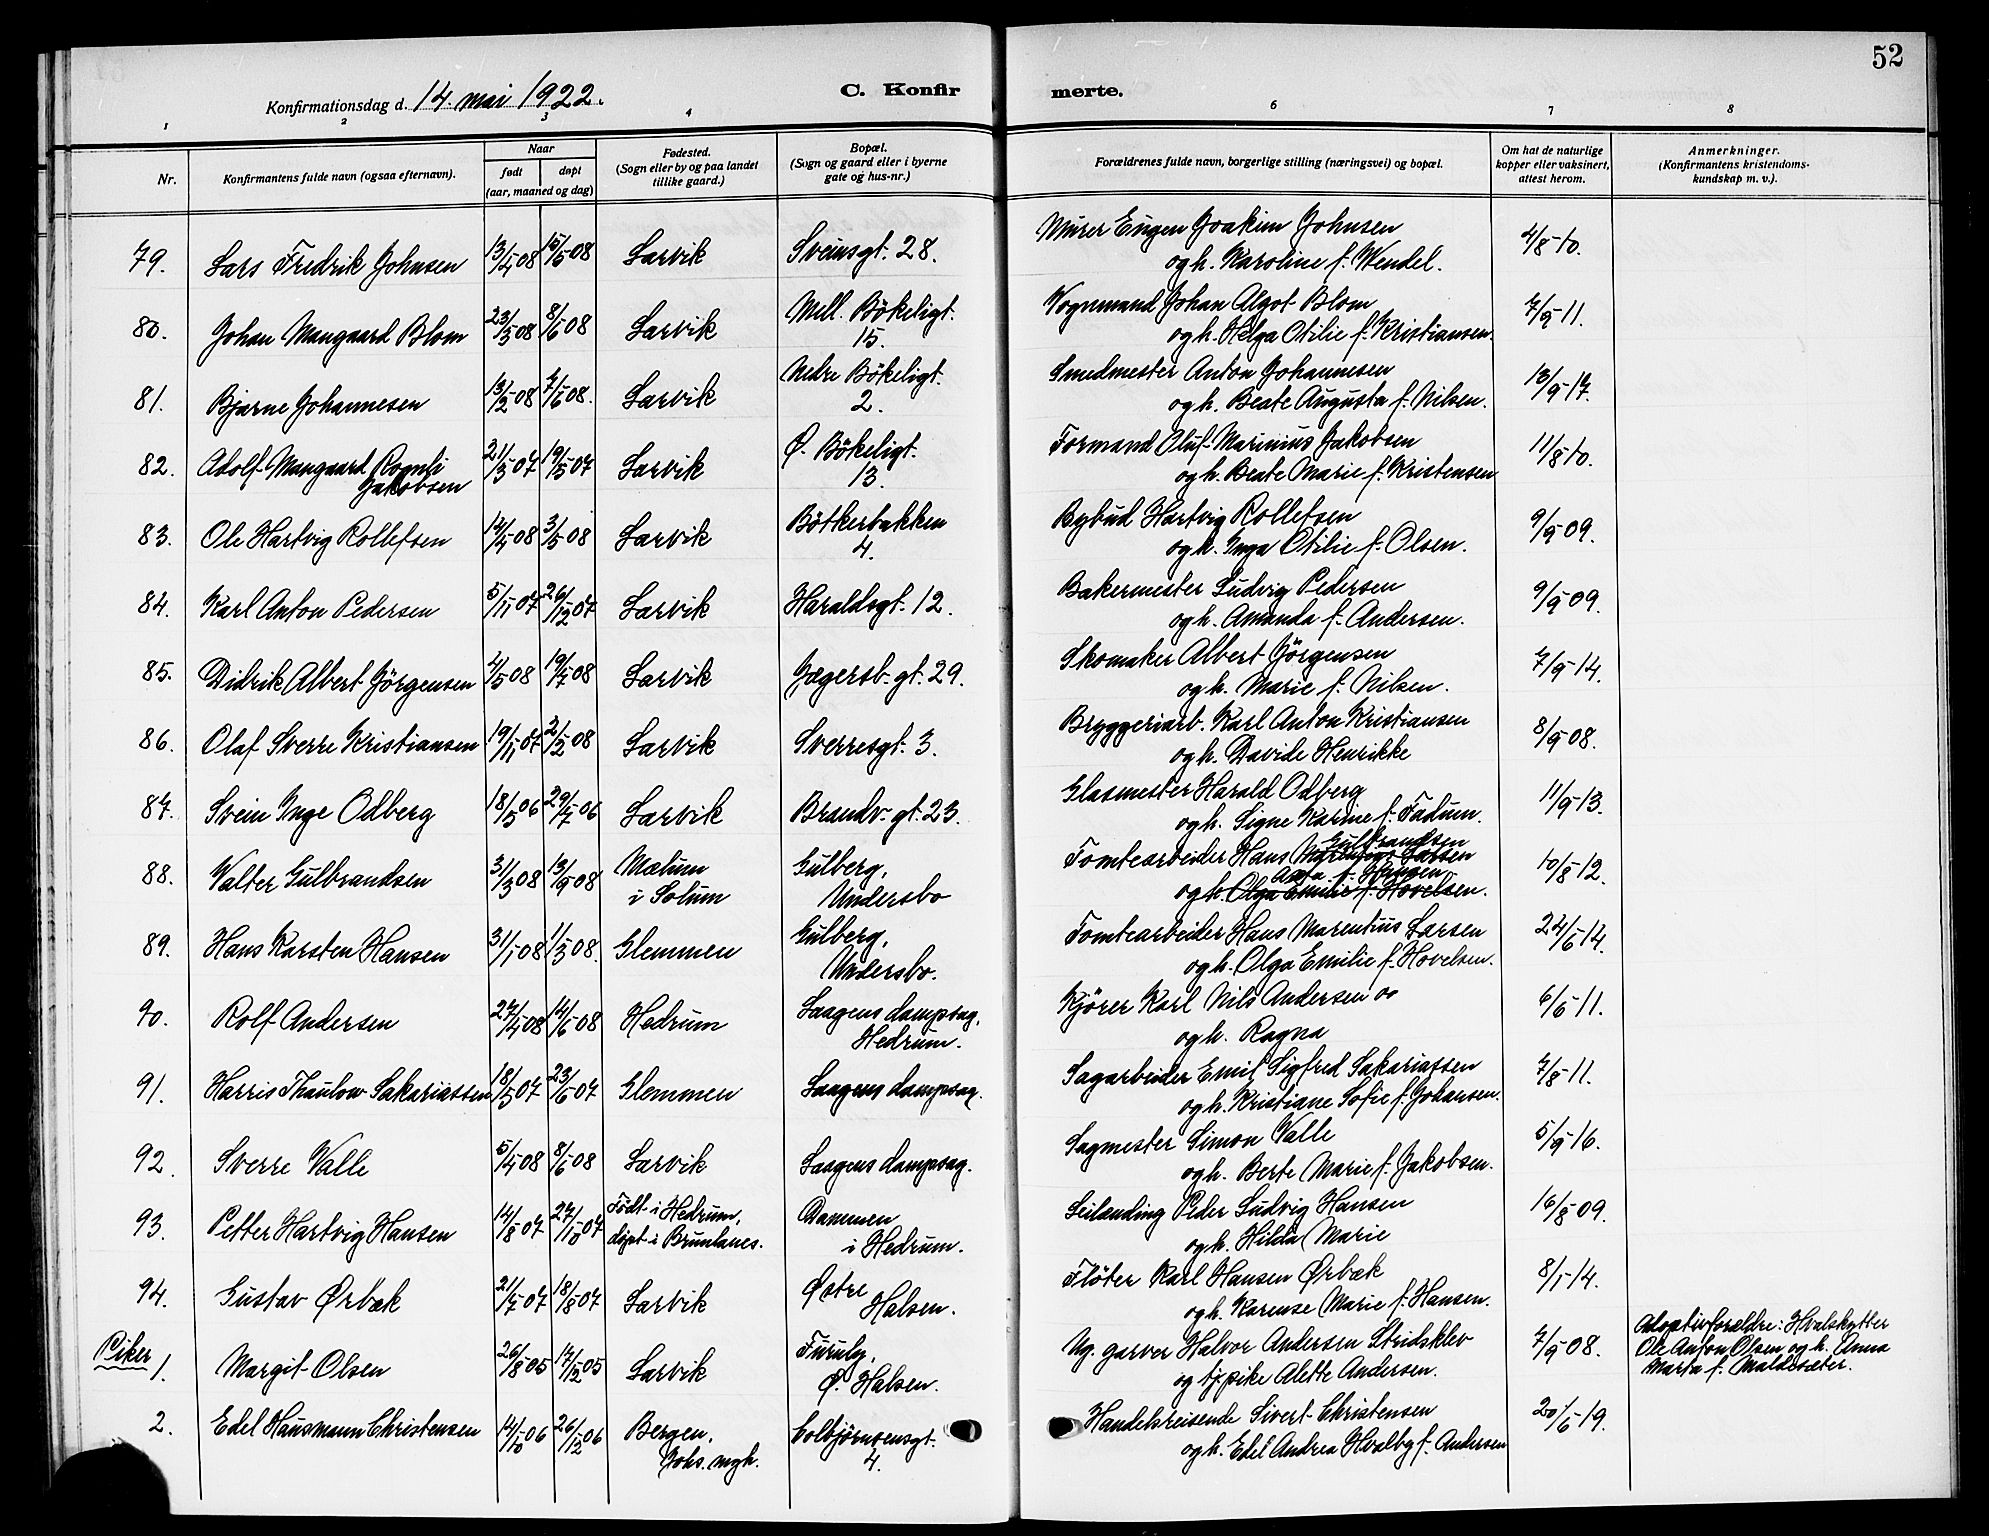 52
Konfirmationsdag d. 14. mai 1922.
C. Konfir
merte.
1 2 3 4 6 7 8
Nr.
Konfirmantens fulde navn (ogsaa efternavn).
Naar
født
døpt
(aar, maaned og dag)
Fødested.
(Sogn eller by og paa landet
tillike gaard.)
Bopæl.
(Sogn og gaard eller i byerne
gate og hus-nr.)
Forældrenes fulde navn, borgerlige stilling (næringsvei) og bopæl.
Om hat de naturlige
kopper eller vaksinert,
attest herom.
Anmerkninger.
(Konfirmantens kristendoms-
kundskap m. v.).
79. Lars Fredrik Johnsen 13/4 08 15/6 08 Larvik Sveinsgt. 28. Murer Eugen Joakim Johnsen 4/8-10.
og h. Karoline f. Wendel.
80. Johan Mangaard Blom 23/3 08 8/6 08 Larvik Mell. Bökeligt. Vognmand Johan Algot Blom 7/9-11.
15. og h. Helga Otilie f. Kristiansen.
81. Bjarne Johannesen 13/2 08 7/6 08. Larvik Nedre Bökeligt. Smedmester Anton Johannesen 13/9-17.
2. og h. Beate Augusta f. Nilsen.
82. Adolf Mangaard Rognli 21/3 07 19/5 07 Larvik Ø. Bökeligt. Formand Oluf Marinius Jakobsen 11/8-10.
Jakobsen 13. og h. Beate Marie f. Kristensen
83. Ole Hartvig Rollefsen 12/4 08 3/5 08 Larvik Bötkerbakken Bybud Hartvig Rollefsen 9/9-09.
4. og h. Inga Otilie f. Olsen.
84. Karl Anton Pedersen 5/11 07 26/12 07 Larvik Haraldsgt. 12. Bakermester Ludvig Pedersen 9/9-09.
og h. Amanda f. Andersen.
85. Didrik Albert Jörgensen 4/5 08 19/7 08 Larvik Jegersb. gt. 29. Skomaker Albert Jörgensen 7/9-14.
og h. Marie f. Nilsen.
86. Olaf Sverre Kristiansen 19/11 07 2/2 08 Larvik Sverresgt. 3. Bryggeriarb. Karl Anton Kristiansen 8/9-08.
og h. Davide Henrikke
87. Svein Inge Odberg 18/5 06 29/7 06 Larvik Brandv. gt. 23. Glasmester Harald Odberg 11/9-13.
og h. Signe Karine f. Fadum.
Gulbrandsen
88. Valter Gulbrandsen 31/3 08 13/9 08 Mælum Gulberg, Tomtearbeider Hans Marentius Larsen 10/8-12.
i Solum Undersbo og h. Olga Emilie f. Hovelsen.
89. Hans Karsten Hansen 31/1 08 1/3 08. Glemmen Gulberg, Tomtearbeider Hans Marentius Larsen 24/6-14.
Undersbo. og h. Olga Emilie f. Hovelsen.
90. Rolf Andersen 27/4 08 14/6 08 Hedrum Laagens dampsag, Kjörer Karl Nils Andersen 6/6-11.
Hedrum. og h. Ragna
91. Harris Thaulow Sakariassen 18/5 07 23/6 07 Glemmen Laagens dampsag. Sagarbeider Emil Sigfred Sakariassen 7/8-11.
og h. Kristiane Sofie f. Johansen.
92. Sverre Valle 5/4 08 8/6 08 Larvik Laagens dampsag. Sagmester Simon Valle 5/9-16.
og h. Berte Marie f. Jakobsen.
93. Petter Hartvig Hansen 14/8 07 27/10 07 Födt i Hedrum, Dammen Leilending Peder Ludvig Hansen 16/8-09.
döpt i Brunlanes. i Hedrum. og h. Hilda Marie
94. Gustav Ørbæk 21/7 07 18/8 07 Larvik Østre Flöter Karl Hansen Ørbæk 8/1-14.
Halsen. og h. Karense Marie f. Hansen.
Piker
1. Margit Olsen 26/8 05 17/12 05 Larvik Furuly, Ug. garver Halvor Andersen Stridsklev 7/9-08. Adoptivforældre: Hvalskytter
Ø. Halsen. og tj. pike Alette Andersen. Ole Anton Olsen og h. Anna
Marta f. Maldesæter.
2. Edel Hausmann Christensen 14/10 06 26/12 06 Bergen, Colbjørnsensgt. Handelsreisende Sivert Christensen 20/6-19.
Johs. mgh. 4. og h. Edel Andrea Hvalby f. Andersen